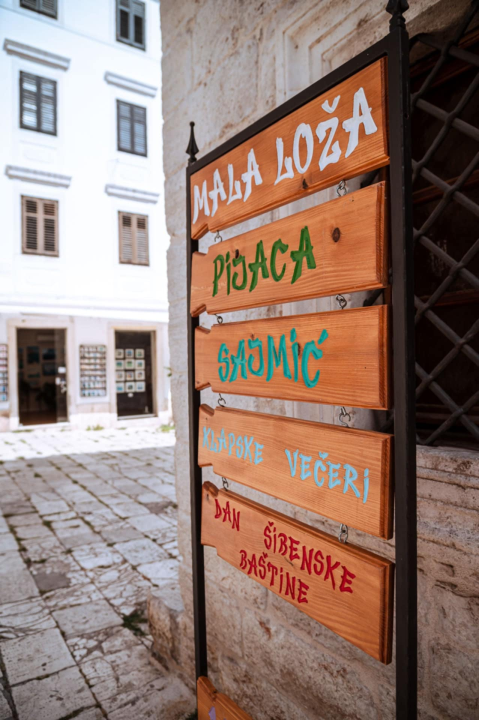 MALA LOŽA
PIJACA
SAJMIĆ
KLAPSKE VEČERI
DAN ŠIBENSKE
BAŠTINE